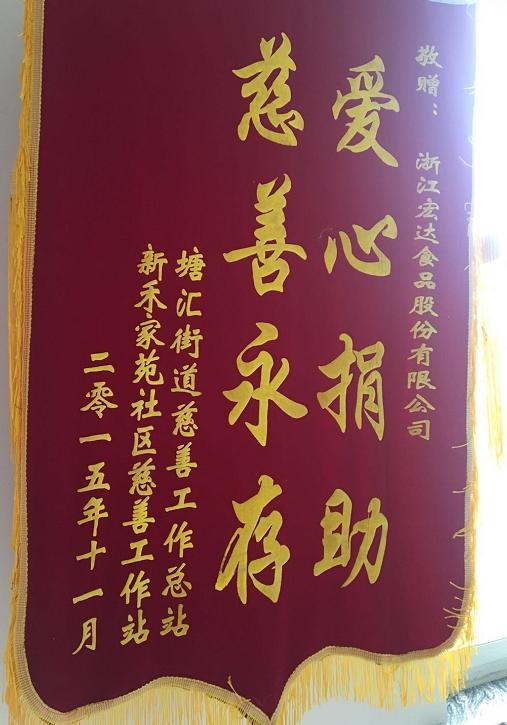 敬赠：浙江宏达食品股份有限公司
爱心捐助
慈善永存
塘汇街道慈善工作总站
新禾家苑社区慈善工作站
二零一五年十一月